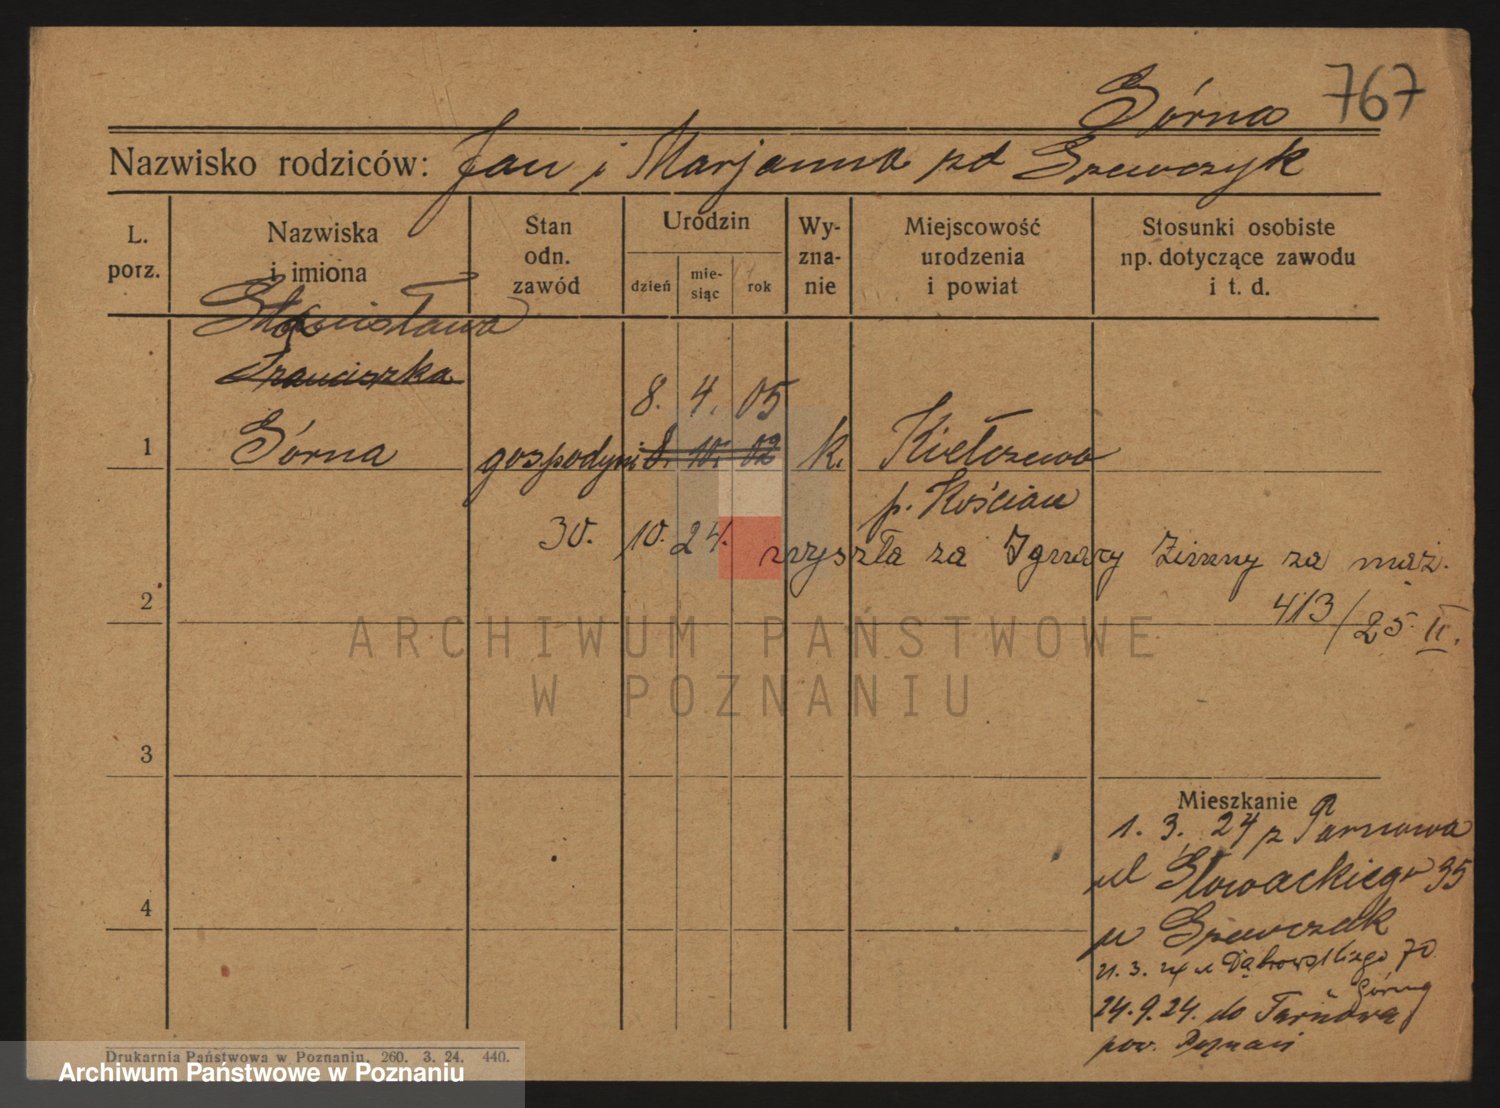 Górna 767
Nazwisko rodziców: Jan i Marjanna zd Szewczyk
L. porz.
Nazwiska i imiona
Stan odn. zawód
Urodzin
dzień
mie-siąc
rok
Wy-zna-nie
Miejscowość urodzenia i powiat
Stosunki osobiste np. dotyczące zawodu i t. d.
Stanisława
Franciszka
8. 4. 05
1 Górna gospodyni 8. 10. 02 k. Kiełczewo
p. Kościan
30. 10. 24. wyszła za Ignacy Zimny za mąż.
2
413/25 II.
ARCHIWUM PAŃSTWOWE
W POZNANIU
3
Mieszkanie
1. 3. 24 z Tarnowa
ul Słowackiego 35
4
u Szewczak
21. 3. 24 ul Dąbrowskiego 70
u Górny
24. 9. 24. do Tarnowa
pow. Poznań
Drukarnia Państwowa w Poznaniu. 260. 3. 24. 440.
Archiwum Państwowe w Poznaniu